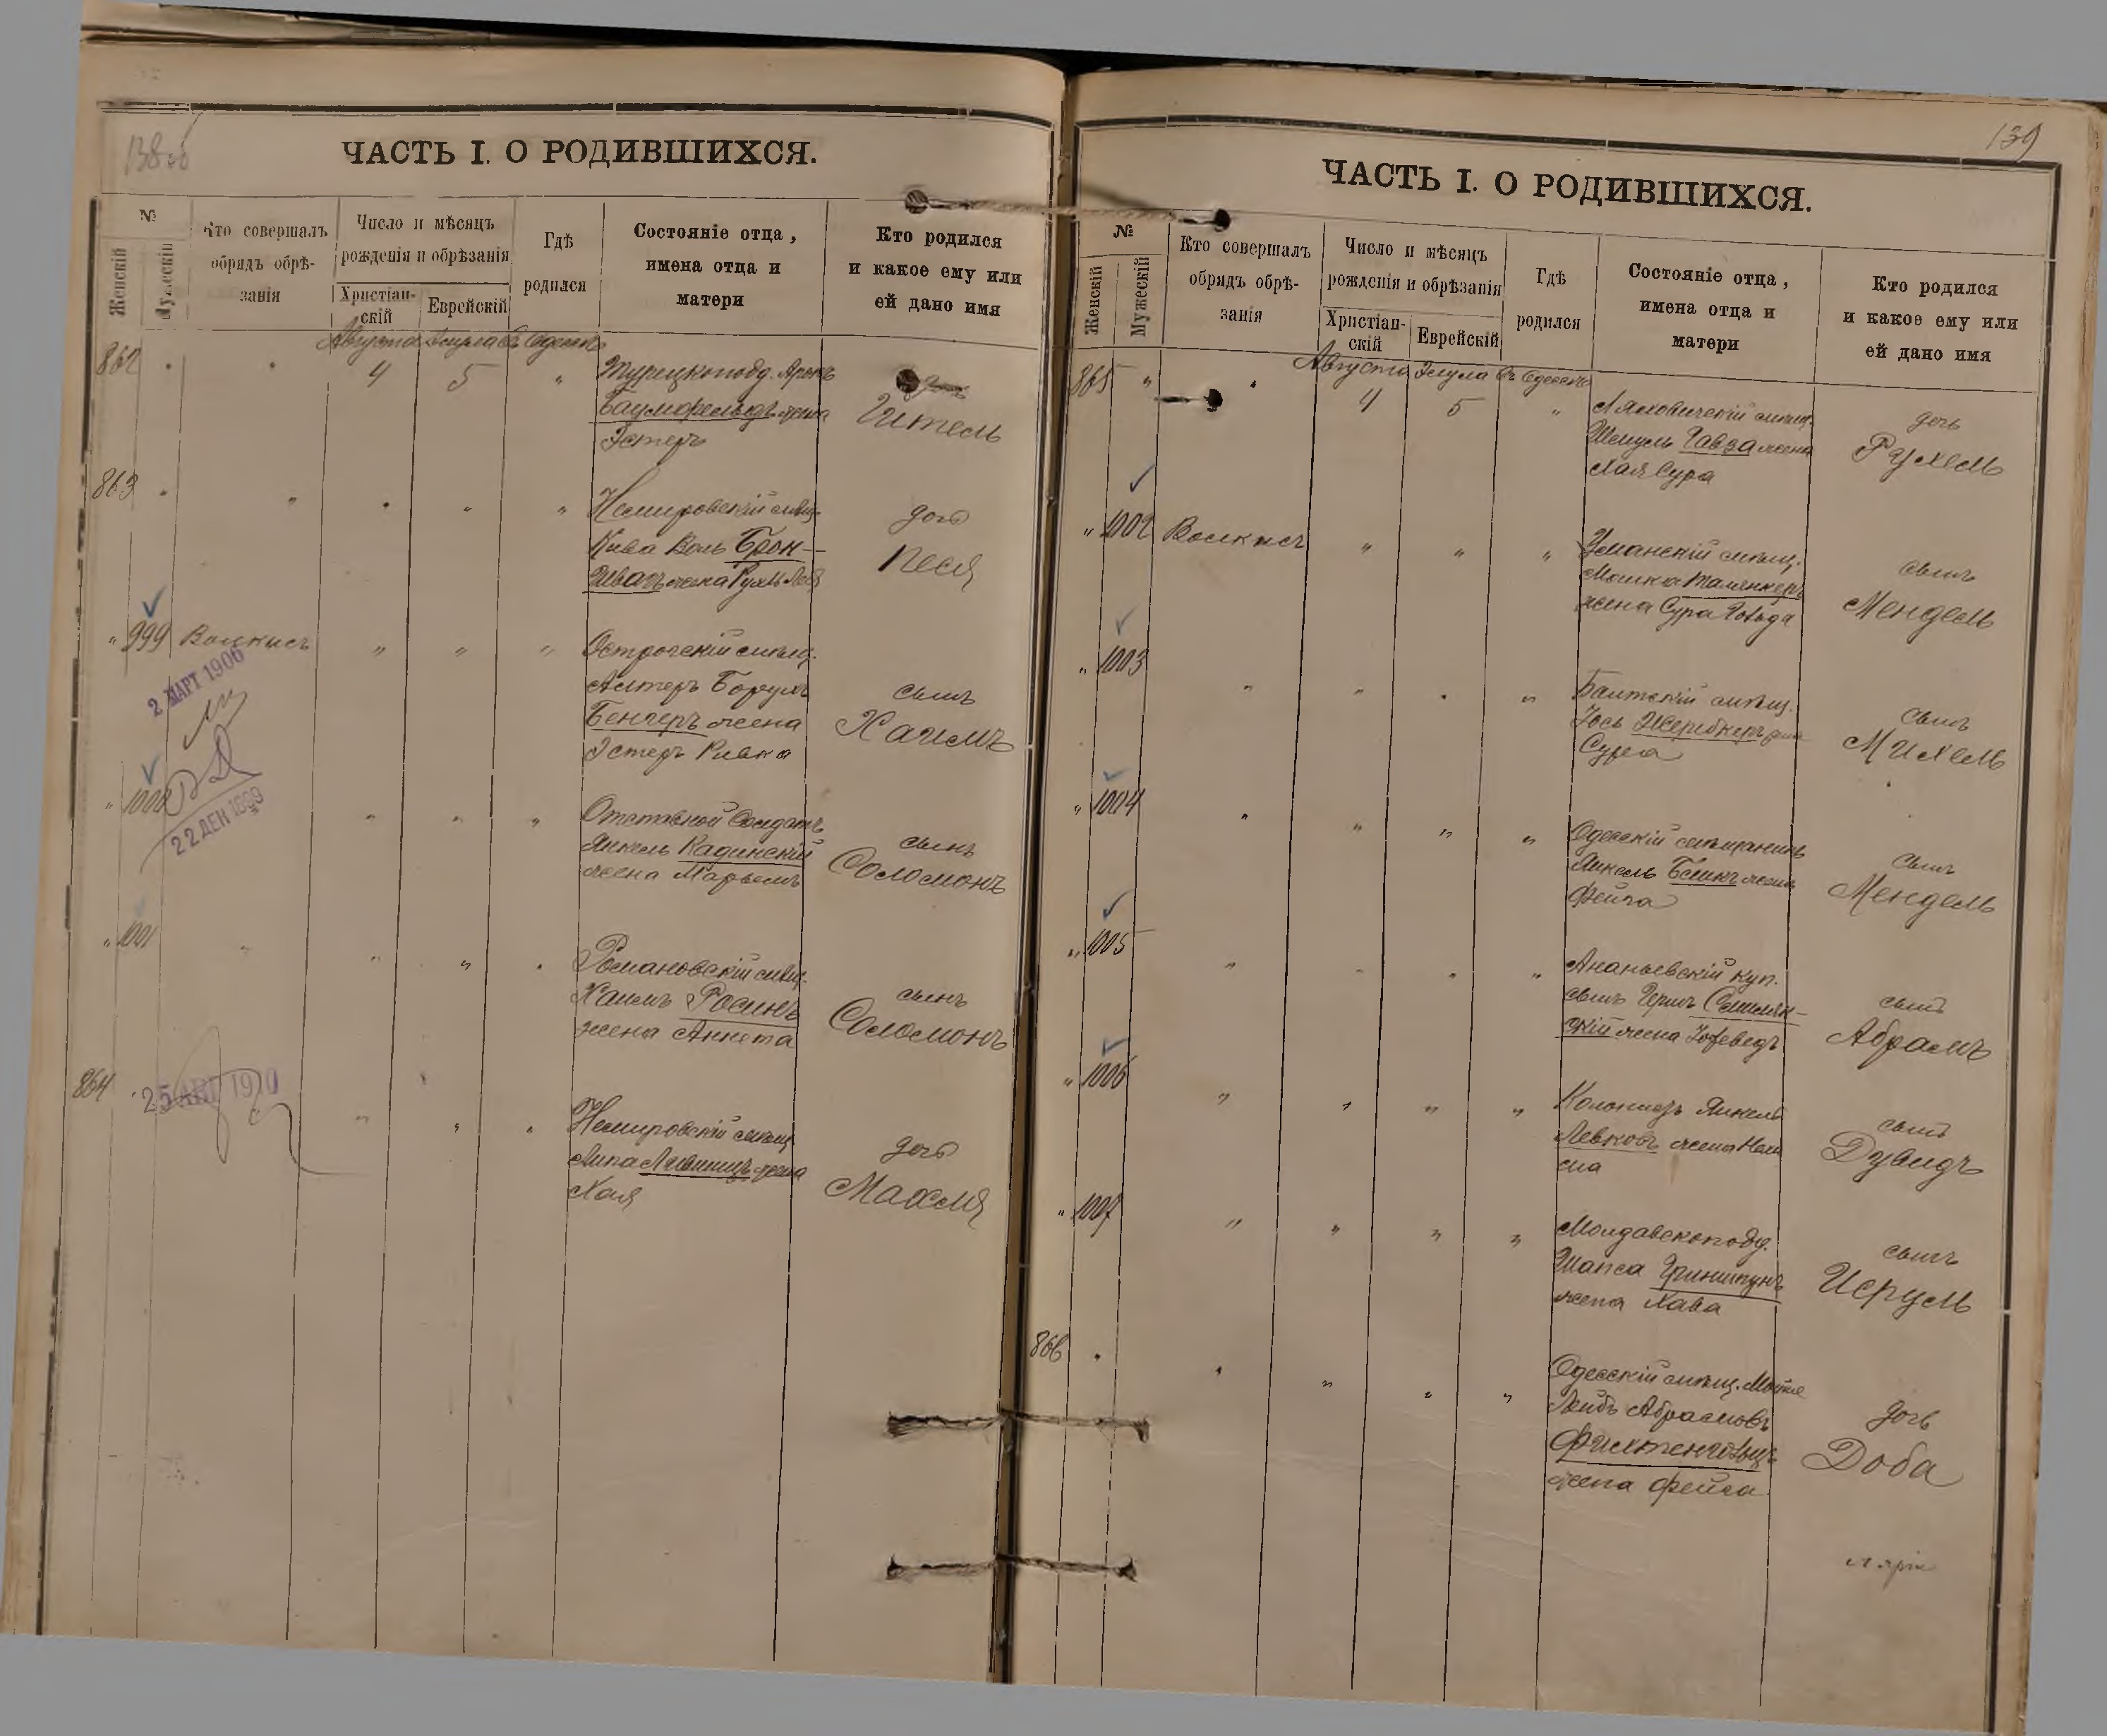 138об
ЧАСТЬ I. О РОДИВШИХСЯ.
№
Женскій
Мужескій
Кто совершалъ
обрядъ обрѣ-
занія
Число и мѣсяцъ
рожденія и обрѣзанія
Христіан-
скій
Еврейскій
Гдѣ
родился
Состояніе отца,
имена отца и
матери
Кто родился
и какое ему или
ей дано имя
Августа Элула Въ Одессѣ
862 4 5 " Турецкопод. Аронъ
Баумфельдъ жена
Эстеръ
дочь
Гитель
863 " " " Немировскій мѣщ.
Кива Воль Брон-
швагъ жена Рухль Лея
дочь
Песя
" 999 Волкисъ " " " Острогскій мѣщ.
Алтеръ Борухъ
Бенгеръ жена
Эстеръ Ривка
сынъ
Хаимъ
2 МАРТ 1906
22 ДЕК 1899
" 1000 " " " Отставной Солдатъ
Янкель Кадинскій
жена Марьемъ
сынъ
Соломонъ
" 1001 " " " Романовскій мѣщ.
Хаимъ Росинъ
жена Аннета
сынъ
Соломонъ
864 25 АВГ 1910
" " " Немировскій мѣщ.
Липа жена
Хая
дочь
Махля
139
ЧАСТЬ I. О РОДИВШИХСЯ.
№
Женскій
Мужескій
Кто совершалъ
обрядъ обрѣ-
занія
Число и мѣсяцъ
рожденія и обрѣзанія
Христіан-
скій
Еврейскій
Гдѣ
родился
Состояніе отца,
имена отца и
матери
Кто родился
и какое ему или
ей дано имя
Августа Элула Въ Одессѣ
865 " " 4 5 " Ляховичскій мѣщ.
Шмуль Гавза жена
Хая Сура
дочь
Рухель
" 1002 Волкисъ " " " Уманскій мѣщ.
Мошка Таленкеръ
жена Сура Гольда
сынъ
Мендель
" 1003 " " " " Балтскій мѣщ.
Іось жена
Сура
сынъ
Михель
" 1004 " " " " Одесскій мѣщанинъ
Янкель Белинъ жена
Фейга
сынъ
Мендель
" 1005 " " " " Ананьевскій куп.
сынъ Гершъ Смилян-
скій жена Іохеведъ
сынъ
Абрамъ
" 1006 " " " " Колонистъ Янкель
Левковъ жена Неха
сынъ
Дувидъ
" 1007 " " " " Молдавскопод.
Шапса Гриншпунъ
жена Хава
сынъ
Исруль
866 " " " " Одесскій мѣщ.
Лейбъ Абрамовъ
Фихтенгольцъ
жена Фейга
дочь
Доба